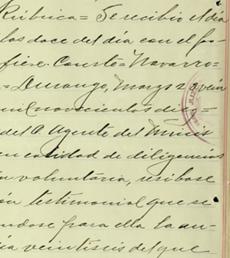 Rúbrica = Se recibió el día
las doce del día con el fo-
fiere. Causto = Navarro =
= Durango, Marzo 22 vein
mil novecientos diez =
del A Agente del Minis
en calidad de diligencias
n voluntaria, recíbase
ón testimonial que se
ndose para ella la au-
cia veintiseis del que